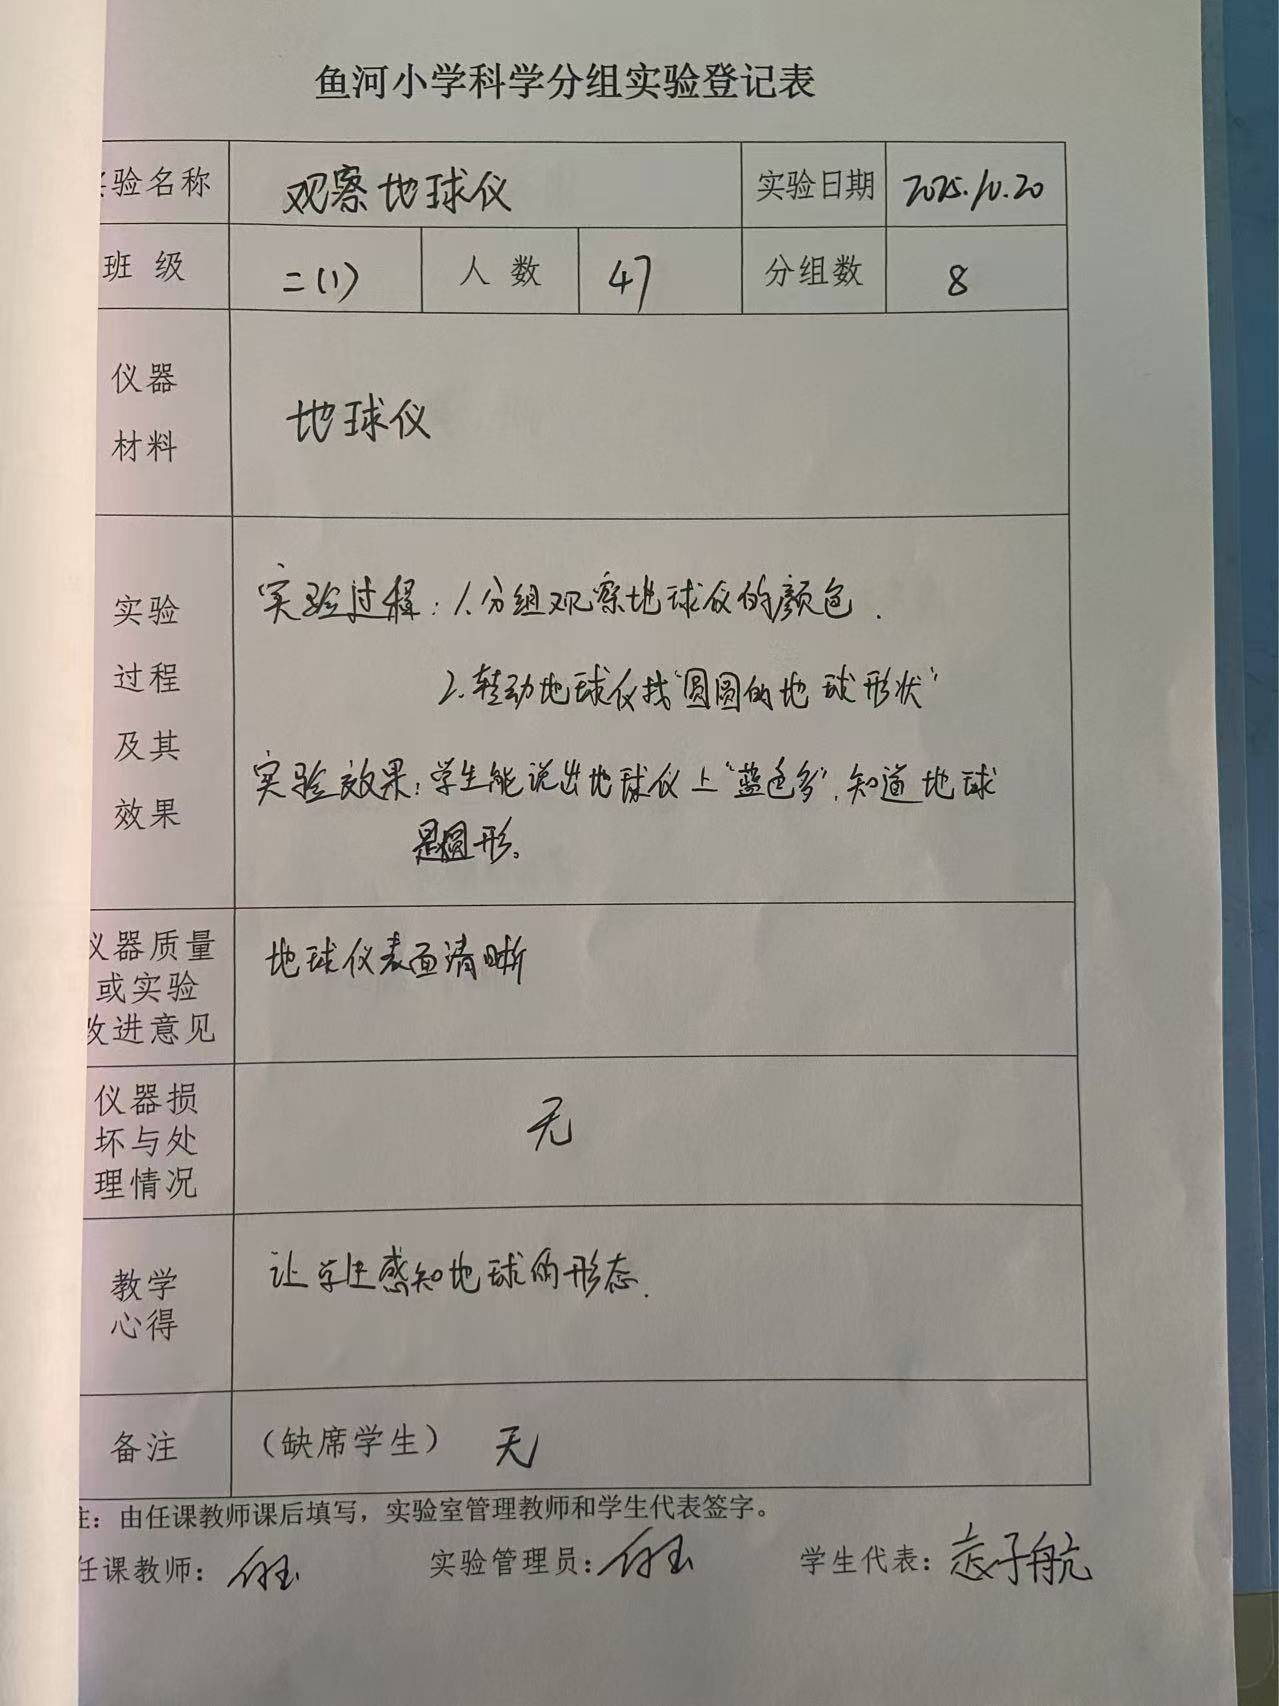 鱼河小学科学分组实验登记表
验名称 观察地球仪 实验日期 2025.10.20
班 级 二(1) 人 数 47 分组数 8
仪器
材料
地球仪
实验
过程
及其
效果
实验过程：1.分组观察地球仪的颜色.
2.转动地球仪找"圆圆的地球形状"
实验效果：学生能说出地球仪上"蓝色多",知道地球
是圆形。
仪器质量
或实验
改进意见
地球仪表面清晰
仪器损
坏与处
理情况
无
教学
心得
让学生感知地球的形态.
备注 （缺席学生） 无
注：由任课教师课后填写，实验室管理教师和学生代表签字。
任课教师： 实验管理员： 学生代表： 子航